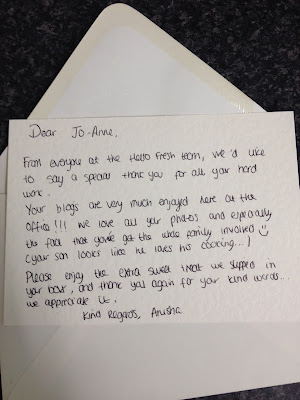 Dear Jo-Anne,
From everyone at the Hello Fresh team, we'd like
to say a special thank you for all your hard
work.
Your blogs are very much enjoyed here at the
office!!! We love all your photos and especially
the fact that you've got the whole family involved ☺
(your son looks like he loves his cooking...)
Please enjoy the extra sweet treat we slipped in
your box, and thank you again for your kind words...
we appreciate it.
Kind Regards, Anusha